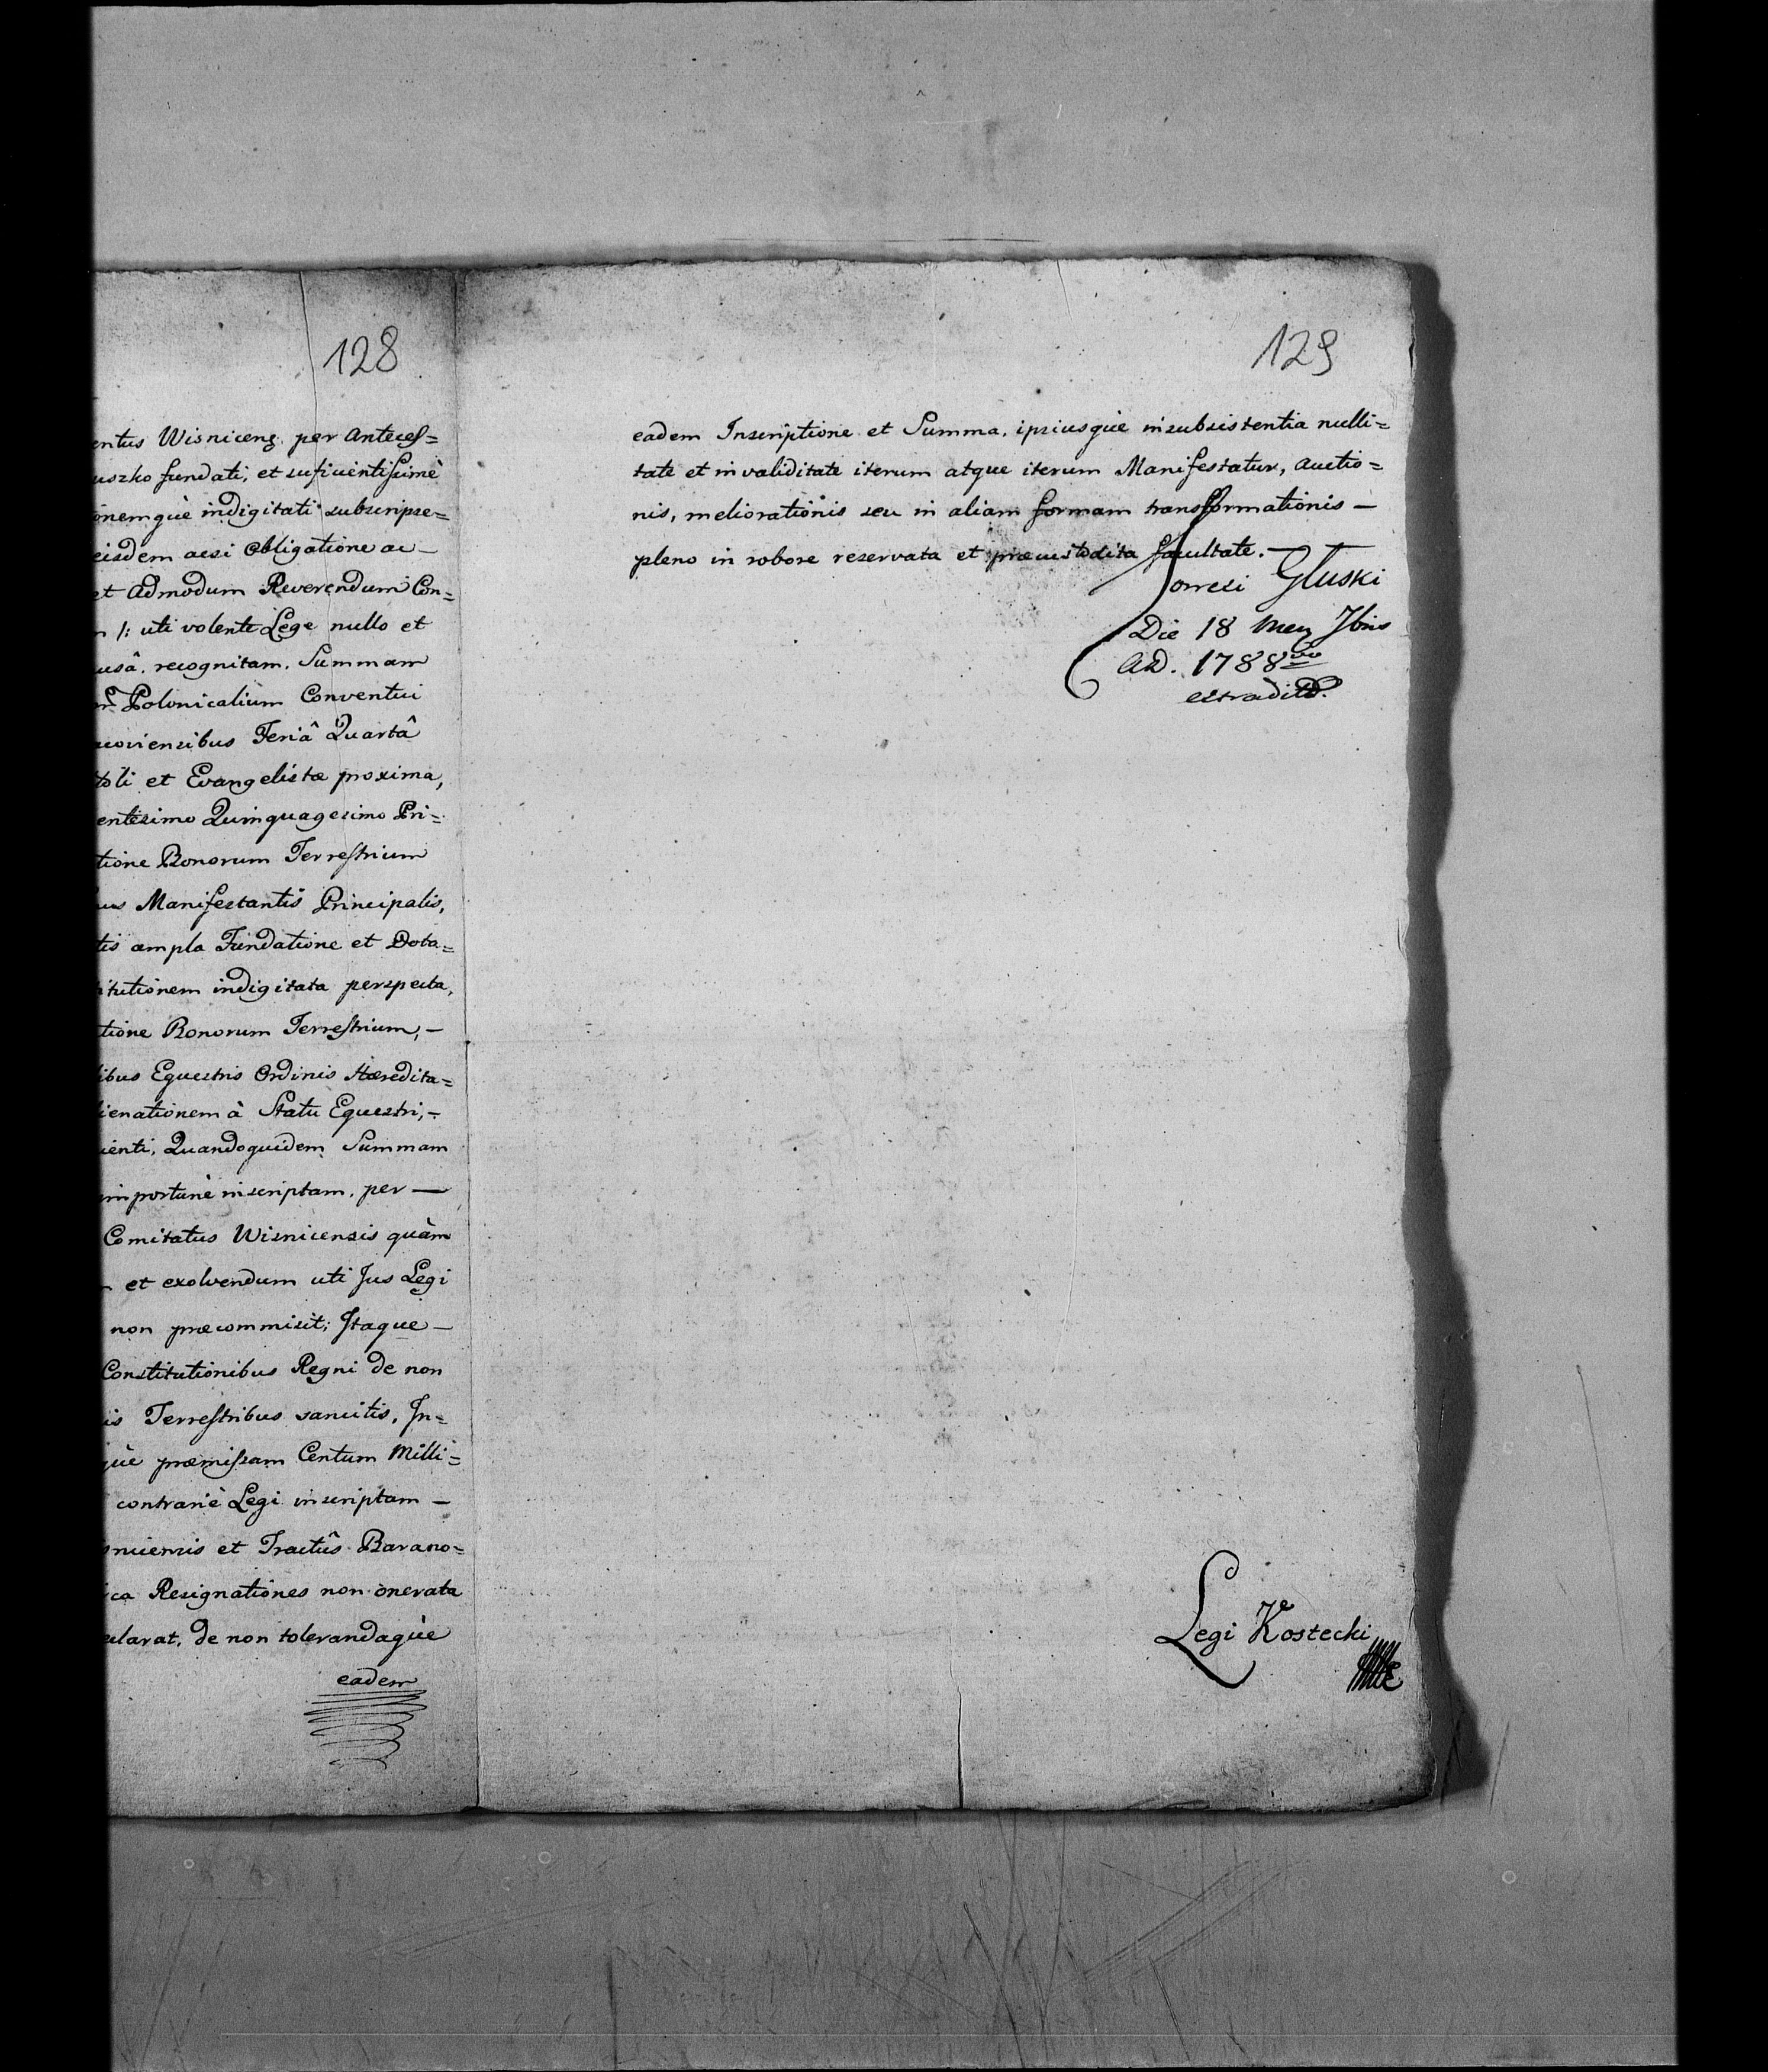 128
entus Wisniceng per Anteces=
uszko fundati, et suficientissime
onemque indigitati subscripse=
eisdem acsi Obligatione ac—
et Admodum Reverendum Con=
/: uti volente Lege nullo et
usâ, recognitam, Summam
Polonicalium Conventui
coviensibus Feriâ Quartâ
toli et Evangelistæ proxima,
entesimo Quinquagesimo Pri=
tione Bonorum Terrestrium
us Manifestantis Principalis,
tis ampla Fundatione et Dota=
itutionem indigitata perspecta,
tione Bonorum Terrestrium,—
ibus Equestris Ordinis Hæredita=
ienationem à Statu Equestri,—
ienti, Quandoquidem Summam
importunè inscriptam, per—
Comitatus Wisnicensis quàm
et exolvendum uti Jus Legi
non præcommisit; Itaque—
Constitutionibus Regni de non
is Terrestribus sancitis, In=
què præmissam Centum Milli=
contrariè Legi inscriptam—
sniciensis et Tractûs Barano=
ca Resignationes non onerata
clarat, de non tolerandaquè
eadem
129
eadem Inscriptione et Summa, ipsiusquè insubsistentia nulli=
tate et invaliditate iterum atque iterum Manifestatur, auctio=
nis, meliorationis seu in aliam formam transformationis—
pleno in robore reservata et præcustodita facultate.—
Correxi Głuski
Die 18 Men 7bris
AD. 1788vo
extradit.
Legi Kostecki